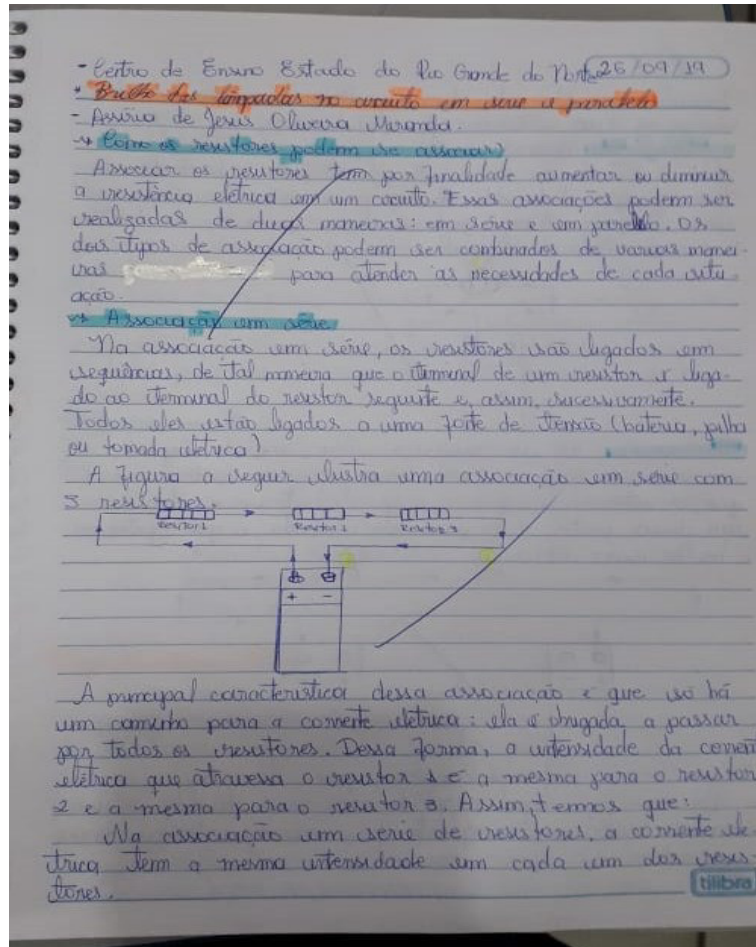 - Centro de Ensino Estado do Rio Grande do Norte 26/09/19
* Brilho das lâmpadas no circuito em série e paralelo
- Assírio de Jesus Oliveira Miranda.
Como os resistores podem se associar?
Associar os resistores tem por finalidade aumentar ou diminuir
a resistência elétrica em um circuito. Essas associações podem ser
realizadas de duas maneiras: em série e em paralelo. Os
dois tipos de associação podem ser combinados de varias manei-
ras para atender as necessidades de cada situ-
ação.
Associação em série
Na associação em série, os resistores são ligados em
sequências, de tal maneira que o terminal de um resistor é liga-
do ao terminal do resistor seguinte e, assim, sucessivamente.
Todos eles estão ligados a uma fonte de tensão (bateria, pilha
ou tomada elétrica)
A figura a seguir ilustra uma associação em série com
3 resistores.
Resistor 1 Resistor 2 Resistor 3
+ -
A principal característica dessa associação é que só há
um caminho para a corrente elétrica: ela é obrigada a passar
por todos os resistores. Dessa forma, a intensidade da corrent
elétrica que atravessa o resistor 1 é a mesma para o resistor
2 e a mesma para o resistor 3. Assim, temos que:
Na associação em série de resistores, a corrente elé-
trica tem a mesma intensidade em cada um dos resis-
tores.
tilibra